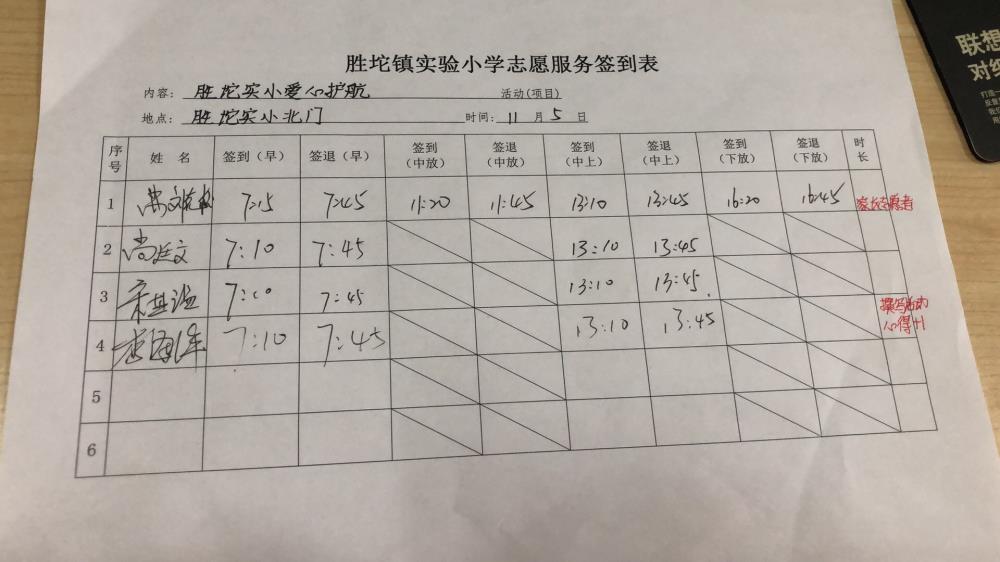 胜坨镇实验小学志愿服务签到表
内容: 胜坨实小爱心护航 活动(项目)
地点: 胜坨实小北门 时间: 11 月 5 日
序号 姓 名 签到(早) 签退(早) 签到(中放) 签退(中放) 签到(中上) 签退(中上) 签到(下放) 签退(下放) 时长
1 7:15 7:45 11:20 11:45 13:10 13:45 16:20 16:45 家长志愿者
2 尚廷文 7:10 7:45 13:10 13:45
3 7:10 7:45 13:10 13:45
4 7:10 7:45 13:10 13:45 撰写活动
心得+1
5
6
联想
对